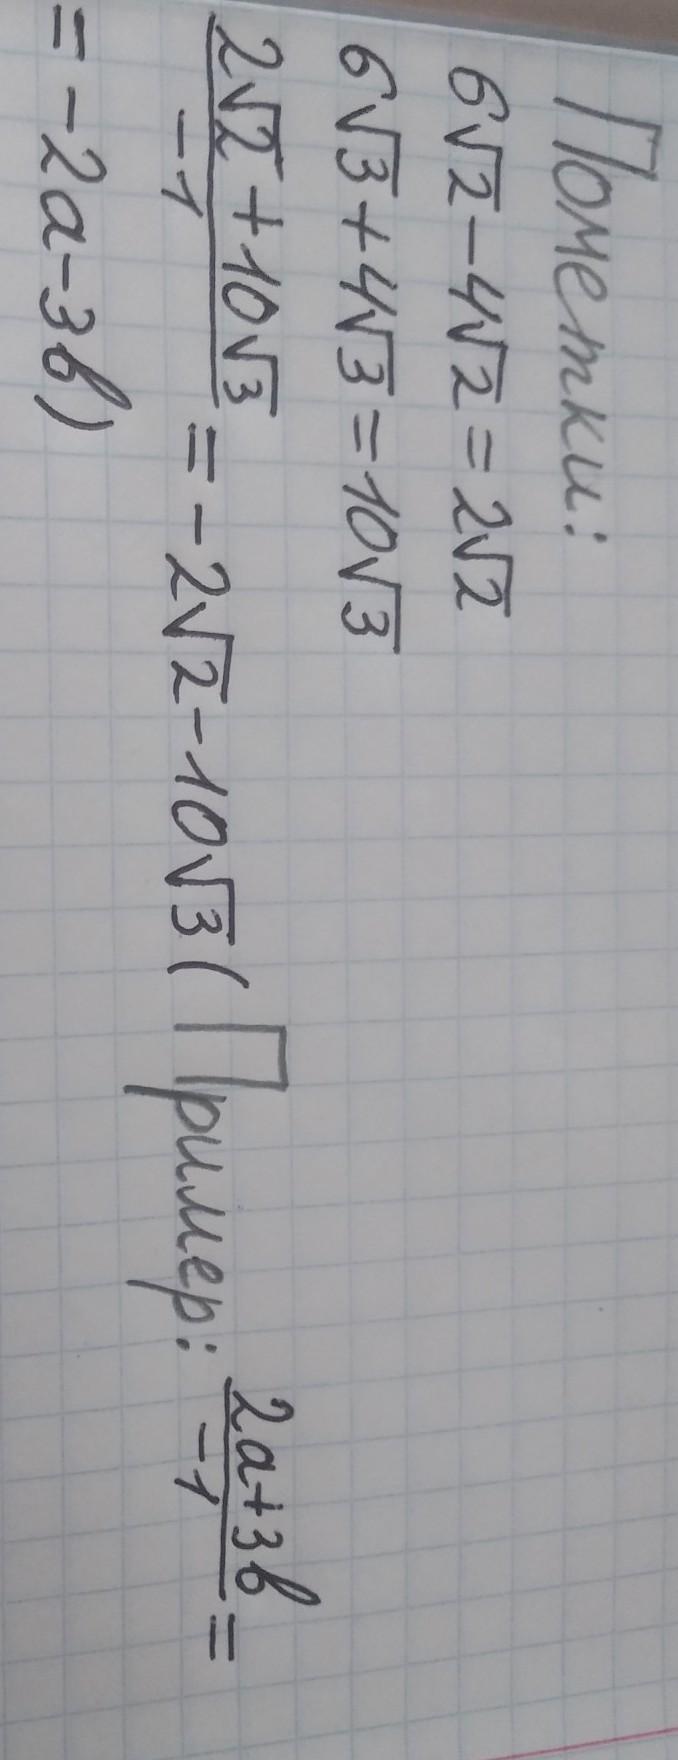 Пометки:
6√2-4√2=2√2
6√3+4√3=10√3
2√2+10√3/-1=-2√2-10√3(Пример: 2a+3b/-1=
=-2a-3b)